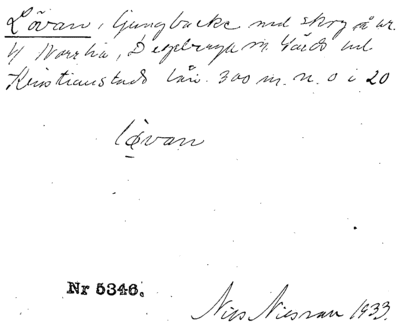 Lövan, ljungbacke med skog på nr.
4 Norrlia, Degeberga sn. Gärds hd.
Kristianstads län. 300 m. n. o i 20
lövan
Nr 5346.
Nils Nilsson 1933.